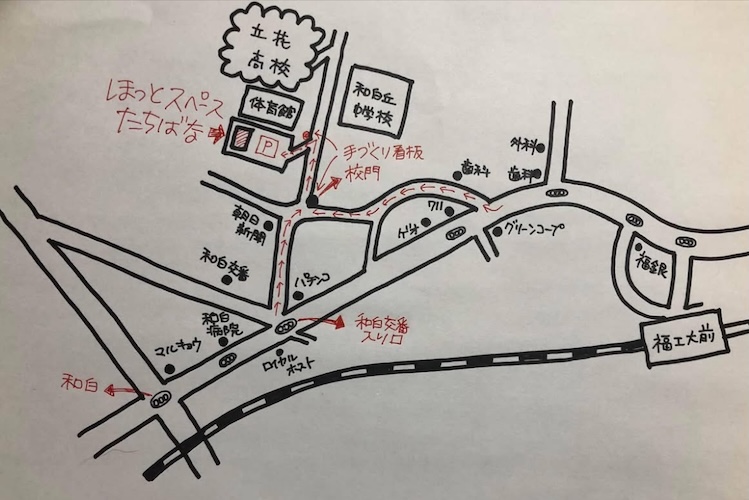 立花
高校
ほっとスペース
たちばな
体育館
P
和白丘
中学校
手づくり看板
校門
外科
歯科
歯科
朝日
新聞
グリーンコープ
和白交番
パチンコ
福銀
和白
病院
マルキョウ
和白交番
入り口
ロイヤル
ホスト
福工大前
和白